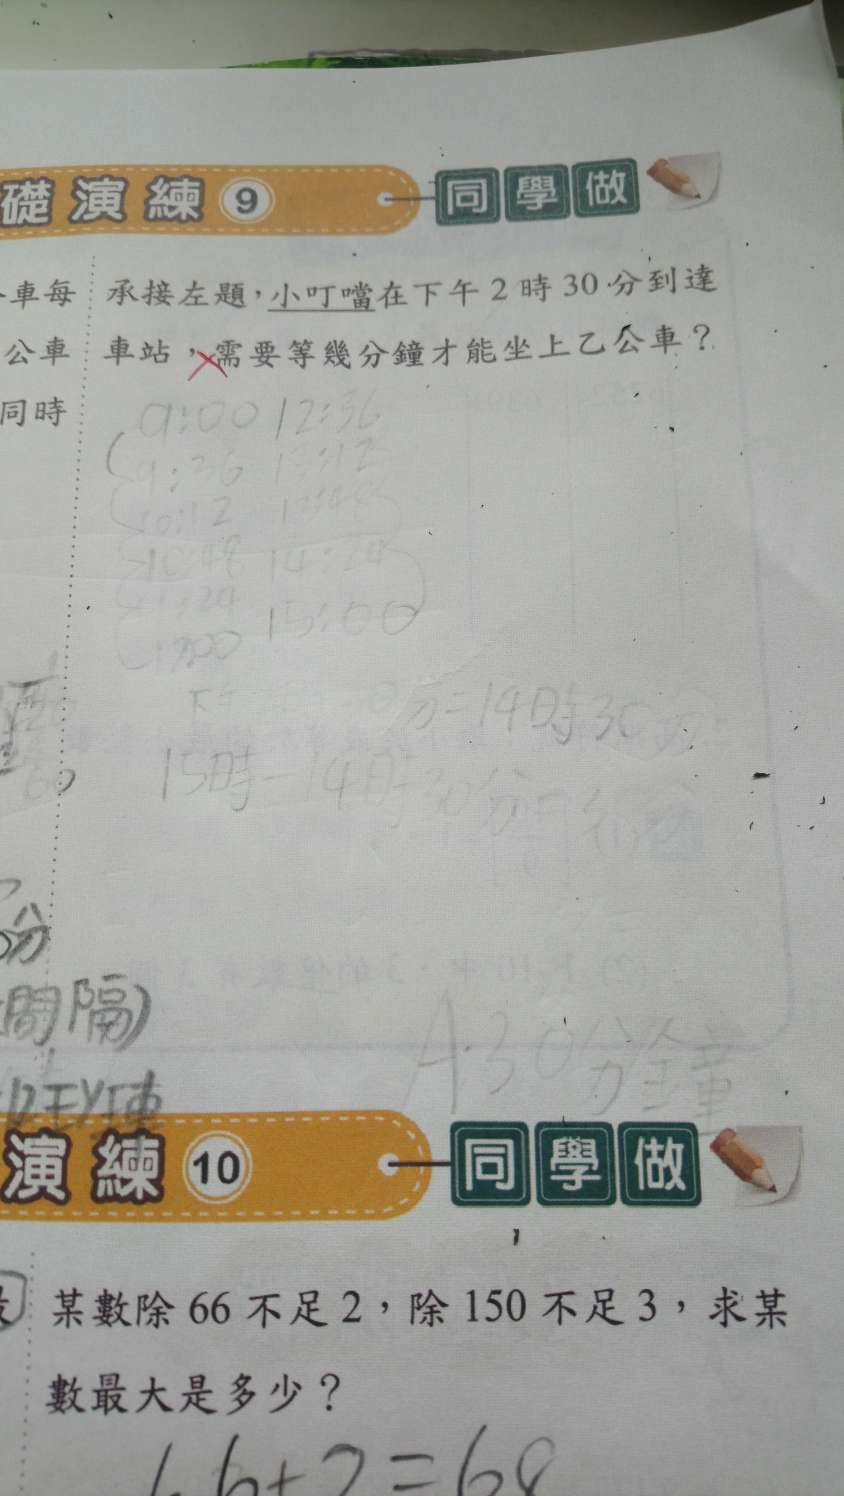 礎演練9 同學做
車每
公車
同時
承接左題，小叮噹在下午2時30分到達
車站，需要等幾分鐘才能坐上乙公車？
9:00 12:36
9:36 13:12
10:12 13:48
10:48 14:24
11:24 15:00
分=14時30
15時-14時30分=
分
間隔)
A:30分鐘
演練10 同學做
某數除66不足2，除150不足3，求某
數最大是多少？
66+2=68